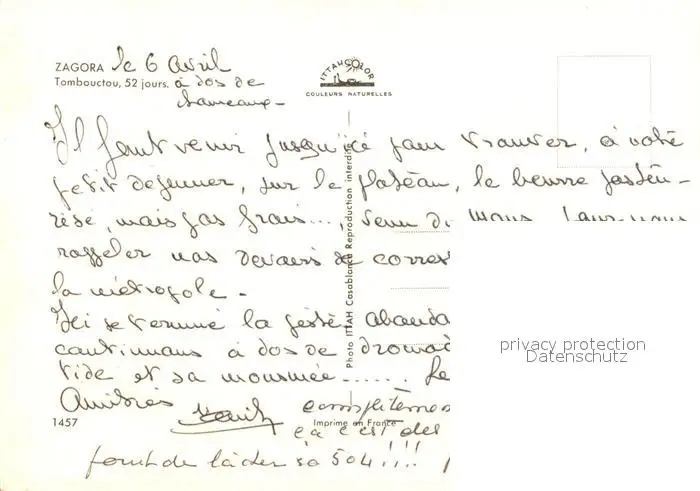 ZAGORA le 6 Avril
Tombouctou, 52 jours. à dos de
chameaux -
ITTAHCOLOR
COULEURS NATURELLES
Il faut venir jusqu'ici pour trouver, à votre
petit dejeuner, sur le plateau, le beurre pasteu-
risé, mais pas frais..., venu du Mans pour nous
rappeler nos devoirs de
la métropole -
Ici se termine la piste,
continuons à dos de
et sa mousmée......
Amitiés
complètement
ça c'est des
de lâcher sa 504!!!!
Photo ITTAH Casablanca Reproduction interdite
1457
Imprimé en France
privacy protection
Datenschutz